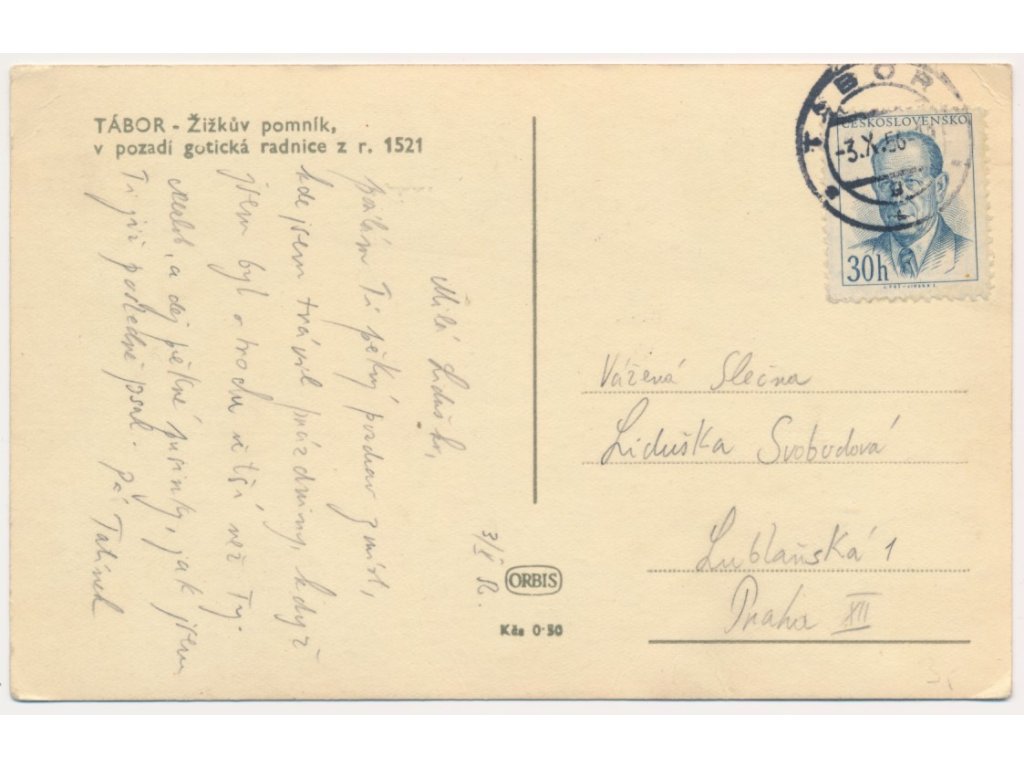 TÁBOR - Žižkův pomník,
v pozadí gotická radnice z r. 1521
Milá Liduško,
posílám Ti pěkný pozdrav z míst,
kde jsem trávil prázdniny, když
jsem byl o trochu větší než Ty.
a dej pěkné pusinky, jak jsem
Ti již posledně psal. Pá Tatínek
3/X
ORBIS
Kčs 0·50
TÁBOR
-3.X.56
ČESKOSLOVENSKO
30h
Vážená Slečna
Liduška Svobodová
Lublaňská 1
Praha XII